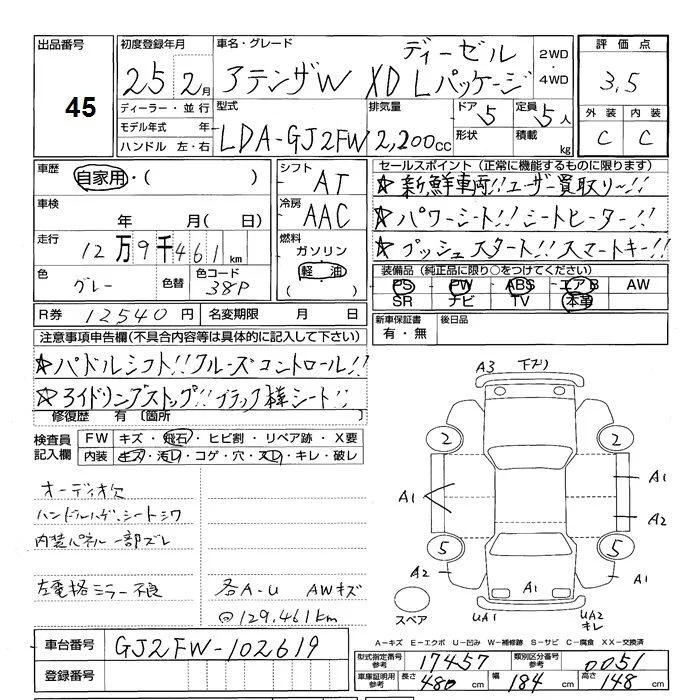 出品番号
45
初度登録年月
25 2月
ディーラー・並行
モデル年式 年
ハンドル 左・右
車名・グレード
ディーゼル
アテンザW XD Lパッケージ
2WD
・
4WD
型式
LDA-GJ2FW
排気量
2,200cc
ドア 5
形状
定員 5人
積載 kg
評価点
3.5
外装 内装
C C
車歴
自家用・( )
車検
年 月( 日)
走行
12万9千461km
色
グレー
色替
色コード
38P
シフト
AT
冷房
AAC
燃料
ガソリン
軽油
( )
セールスポイント(正常に機能するものに限ります)
☆新鮮車両!!ユーザー買取リー!!
☆パワーシート!!シートヒーター!!
☆プッシュスタート!!スマートキー!!
装備品(純正品に限り○をつけてください)
PS PW ABS エアB AW
SR ナビ TV 本革
R券 12540円 名変期限 月 日
新車保証書
有・無
後日品
注意事項申告欄(不具合内容等は具体的に記入して下さい)
☆パドルシフト!!クルーズコントロール!!
☆アイドリングストップ!!ブラック革シート!!
修復歴 有〔箇所 〕
検査員
記入欄
FW キズ・飛石・ヒビ割・リペア跡・X要
内装 キズ・汚レ・コゲ・穴・スレ・キレ・破レ
オーディオ欠
ハンドルハゲ、シートシワ
内装パネル一部ズレ
左電格ミラー不良
各A-U AWキズ
@129.461km
A3 下スリ
2 2
A1 A1
A2
5 5
A2 A1 A1
スペア
UA1 UA2
キレ
A-キズ E-エクボ U-凹み W-補修跡 S-サビ C-腐食 XX-交換済
車台番号 GJ2FW-102619
登録番号
型式指定番号
参考
17457
類別区分番号
参考
0051
車庫証明用
参考
長さ 480cm 幅 184cm 高さ 148cm